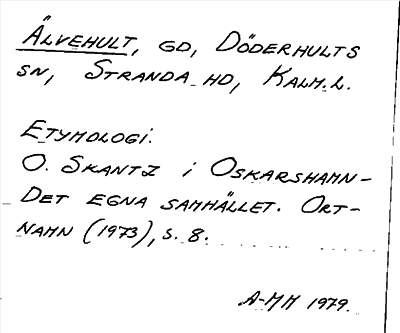 ÄLVEHULT, GD, DÖDERHULTS
SN, STRANDA HD, KALM.L.
ETYMOLOGI.
O. SKANTZ i OSKARSHAMN-
DET EGNA SAMHÄLLET. ORT-
NAMN (1973), S. 8.
A-MM 1979.